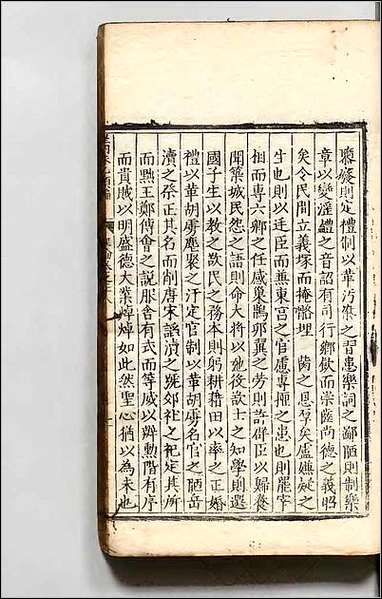 則定禮制以革污染之習患樂詞之鄙陋則制樂
章以變淫禮之音詔有司行鄉飲而崇齒尚德之義昭
矣令民間立義塚而掩骼埋胔之恩孚矣慮嫌疑之
生也則以廷臣而兼東宮之官慮專擅之患也則罷宰
相而專六卿之任感巢鵲卵翼之勞則詔群臣以歸養
聞築城民怨之語則命大將以弛役欲士之知學則選
國子生以教之欲民之務本則躬耕藉田以率之正婚
禮以革胡虜麀聚之汙定官制以革胡虜名官之陋岳
瀆之祭正其名而削唐宋謟瀆之號郊社之祀定其所
而黜王鄭傅會之說服舍有式而等威以辨勳階有序
而貴賤以明盛德大業焯焯如此然聖心猶以為未也